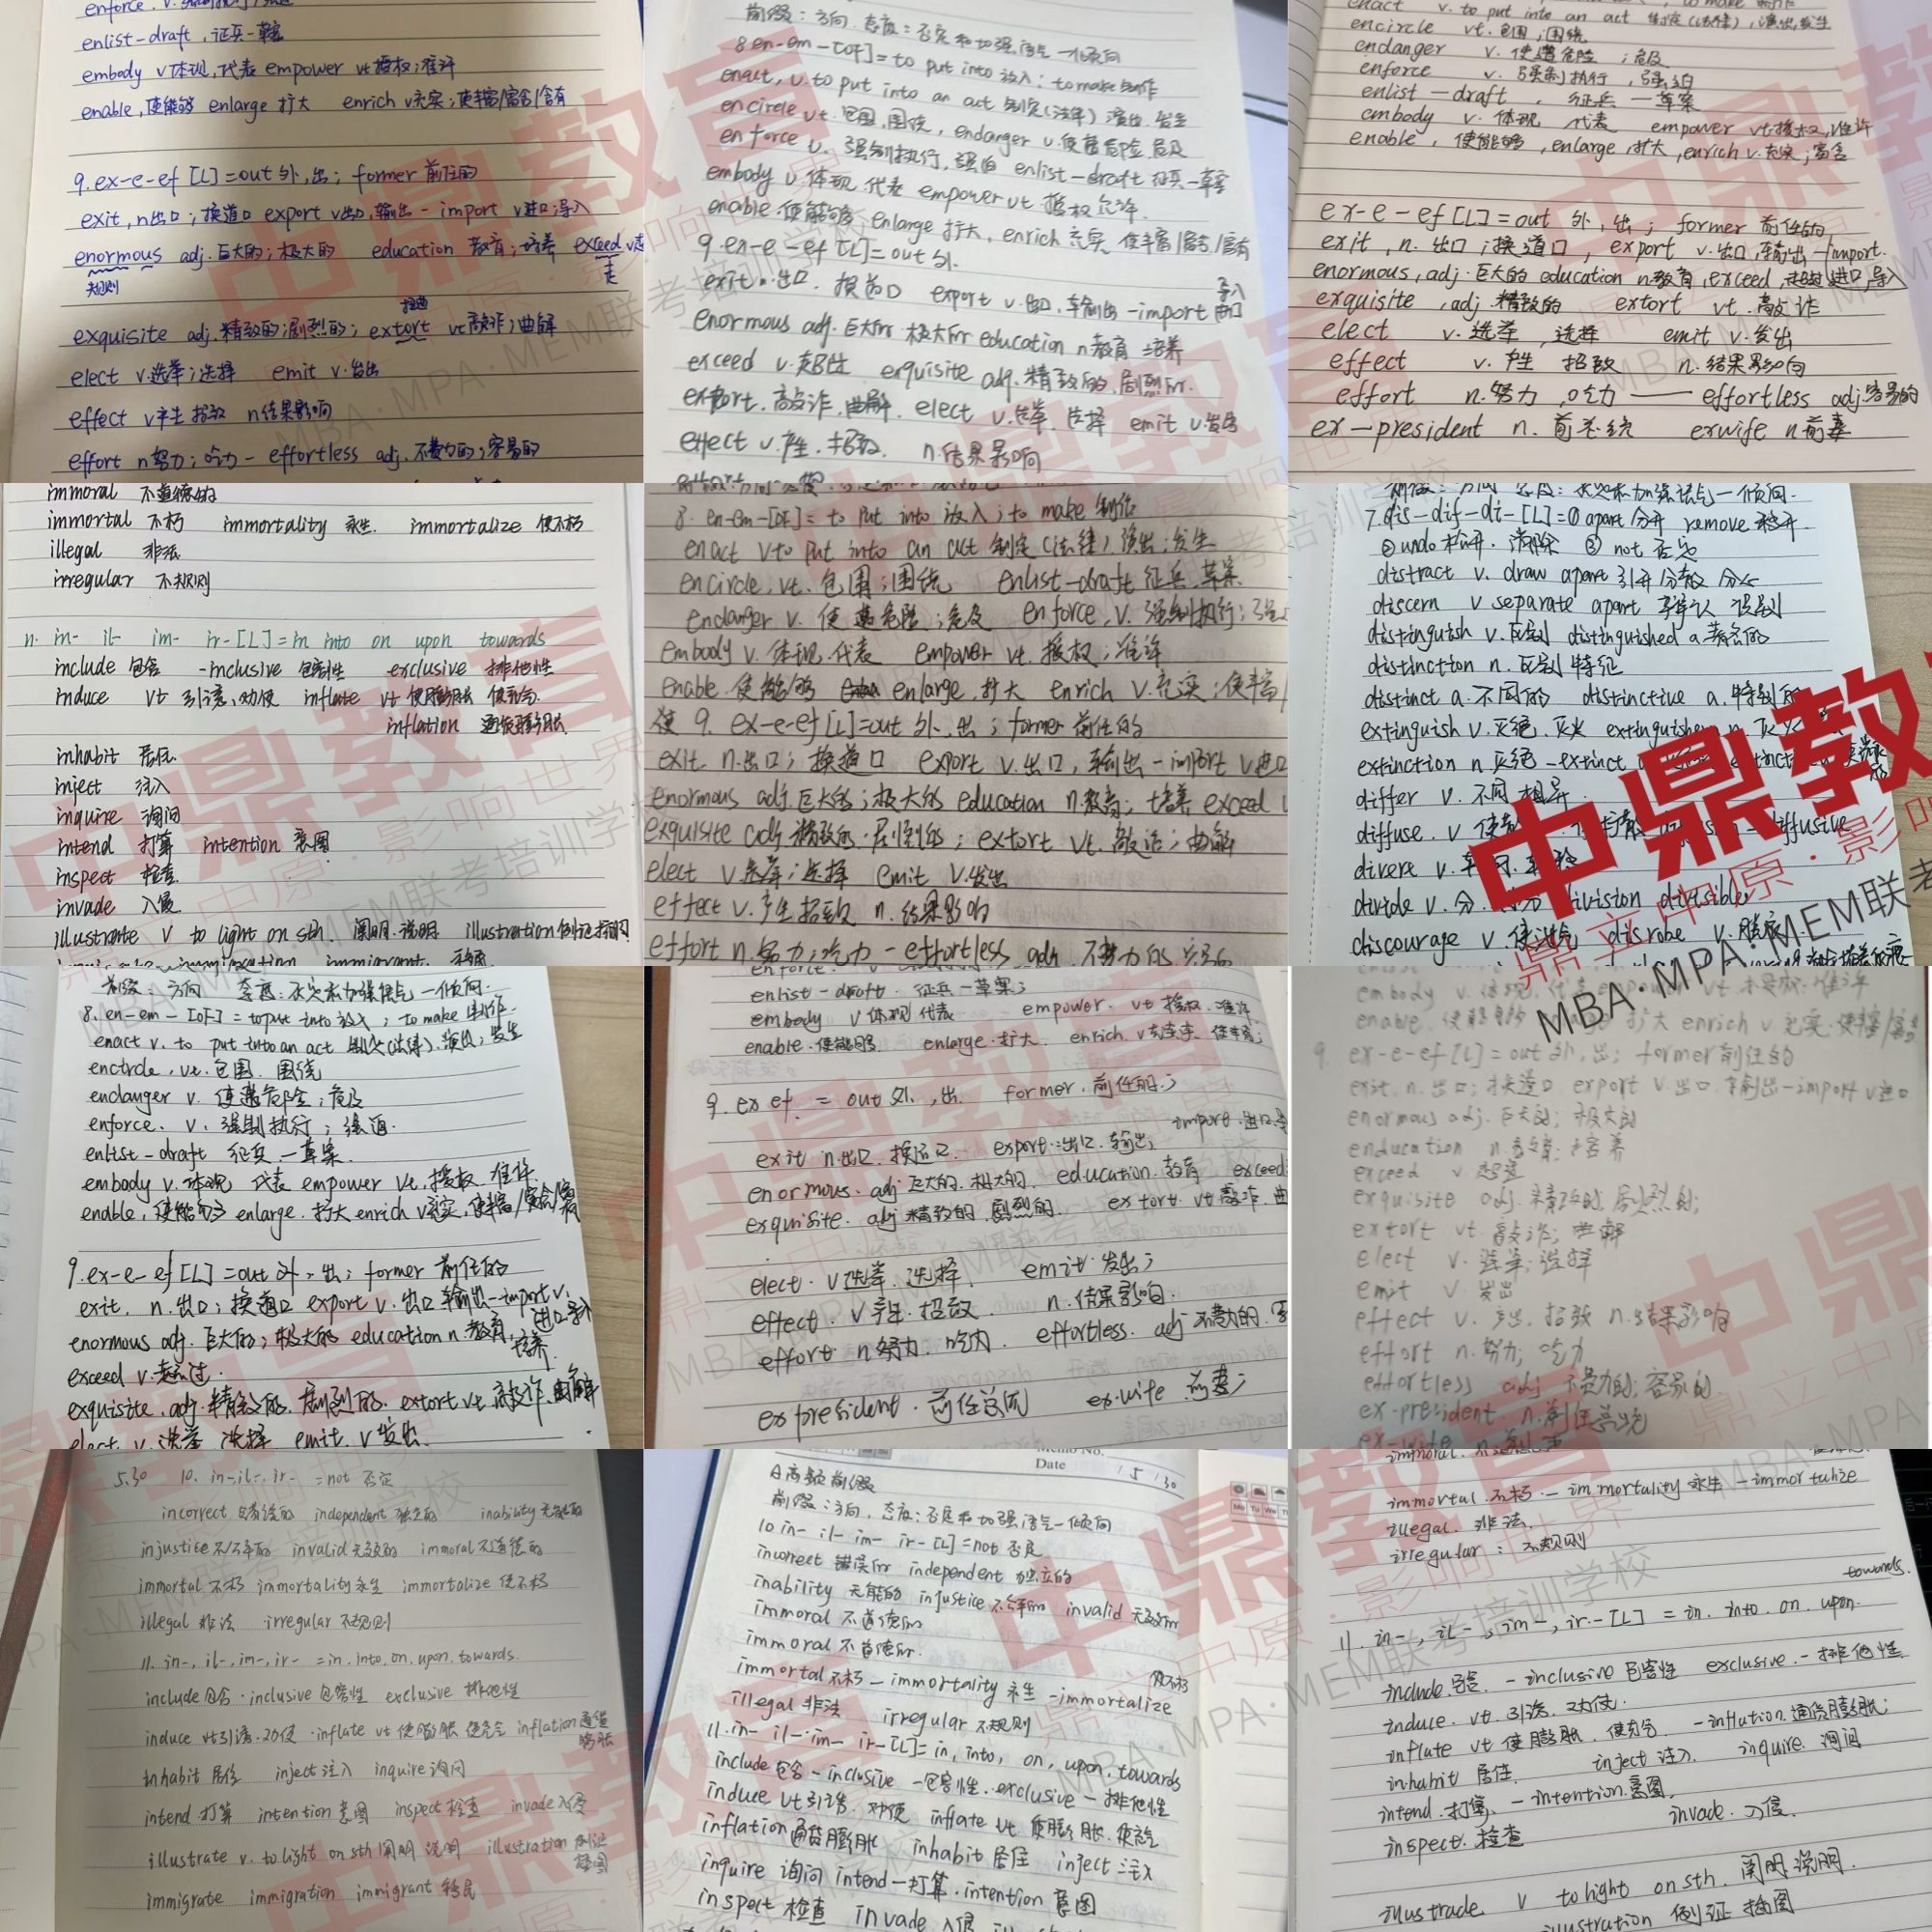 enlist-draft,征兵-草案
embody v体现,代表 empower vt授权;准许
enable,使能够 enlarge 扩大 enrich v充实;使丰富/富含/含有
9.ex-e-ef [L]=out外,出; former 前任的
exit,n出口;换道口 export v出口,输出-import v进口;导入
enormous adj.巨大的;极大的 education 教育;培养 exceed v超
过
规则
扭曲
exquisite adj.精致的;剧烈的; extort vt敲诈;曲解
elect v.选举;选择 emit v.发出
effect v产生 招致 n结果影响
effort n努力;吃力- effortless adj.不费力的;容易的
前缀:方向.态度:否定和加强语气一倾向
8.en-em-[OF]=to put into放入;to make制作
enact,v.to put into an act 制定(法律)演出.发生
encircle vt.包围,围绕, endanger v.使遭危险,危及
enforce v.强制执行,强迫 enlist-draft 征兵-草案
embody v.体现,代表 empower vt 授权 允许.
enable.使能够 enlarge 扩大, enrich 充实 使丰富/富含/富有
9.en-e-ef [L]=out 外.
导入
exit.出口.换道口 export v.出口,输出-import 进口
enormous adj.巨大的 极大的 education n教育 培养
exceed v.超过 exquisite adj.精致的,剧烈的.
extort.敲诈,曲解. elect v.选举,选择 emit v.发出
effect v.产生.招致. n.结果影响
enact v.to put into an act 制定(法律),演出,发生
encircle vt.包围;围绕
endanger v.使遭危险;危及
enforce v.强制执行,强迫
enlist-draft,征兵-草案
embody v.体现 代表 empower vt授权,准许
enable,使能够,enlarge,扩大,enrich v.充实;富含
ex-e-ef[L]=out 外,出; former 前任的
exit,n.出口;换道口, export v.出口,输出-import.
enormous,adj.巨大的 education n教育,exceed,超过 进口,导入
exquisite,adj.精致的 extort vt.敲诈
elect v.选举,选择 emit v.发出
effect v.产生 招致 n.结果影响
effort n.努力,吃力—effortless adj.容易的
ex-president n.前总统 exwife n前妻
immoral 不道德的
immortal 不朽 immortality 永生. immortalize 使不朽
illegal 非法
irregular 不规则
n. in- il- im- ir-[L]=in into on upon towards
include 包含 -inclusive 包容性 exclusive 排他性
induce vt 引诱、劝使 inflate vt 使膨胀 使充气
inflation 通货膨胀
inhabit 居住
inject 注入
inquire 询问
intend 打算 intention 意图
inspect 检查
invade 入侵
illustrate v to light on sth. 阐明.说明 illustration 例证插图
8. en-em-[OF]= to put into 放入;to make 制作
enact v to put into an act 制定(法律),演出;发生
encircle,vt.包围;围绕 enlist-draft 征兵,草案
endanger v.使遭危险;危及 enforce,v.强制执行;强
embody v.体现.代表 empower vt.授权;准许
enable.使能够 enlarge.扩大 enrich v.充实;使丰富/
使 9. ex-e-ef[L]=out 外,出;former 前任的
exit n.出口;换道口 export v.出口,输出-import v进口
enormous adj.巨大的;极大的 education n.教育;培养 exceed
exquisite adj精致的.剧烈的; extort vt.敲诈;曲解
elect v选举;选择 emit v.发出
effect v.产生招致 n.结果影响
effort n.努力;吃力-effortless adj.不费力的
7.dis-dif-di-[L]=①apart分开 remove 移开
②undo 松开.消除 ③ not 否定
distract v. draw apart 引开 分散 分心
discern v separate apart 辨认 识别
distinguish v.区别 distinguished a.著名的
distinction n.区别 特征
distinct a.不同的 distinctive a.特别的
extinguish v.灭绝.灭火
extinction n灭绝-extinct
differ v.不同 相异
diffuse.v diffusive
divert v.
divide v.分 division divisible
discourage v.使泄气 disrobe v.脱衣
中鼎教
鼎立中原·影
MBA·MPA·MEM联考
前缀:方向 态度:否定和加强语气-倾向.
8.en-em-[OF]=to put into放入;to make 制作.
enact v. to put into an act 制定(法律).演出;发生
encircle,vt.包围.围绕
endanger v.使遭危险;危及
enforce.v.强制执行;强迫.
enlist-draft 征兵-草案.
embody v.体现 代表 empower vt.授权.准许.
enable,使能够 enlarge.扩大 enrich v充实,使丰富/富含/富有
9.ex-e-ef[L]=out 外,出;former 前任的
exit. n.出口;换道口 export v.出口 输出-import v.
进口导入
enormous adj.巨大的;极大的 education n.教育,培养.
exceed v.超过.
exquisite.adj.精致的.剧烈的. extort vt.敲诈.曲解
elect v.选举 选择 emit.v发出.
enlist-draft.征兵-草案;
embody v体现 代表 empower. vt授权.准许
enable.使能够 enlarge.扩大. enrich.v充实.使丰富;
9.ex ef. = out 外,出. former.前任的;
import.进口
exit n.出口.换道口. export.出口.输出;
enormous.adj巨大的.极大的. education.教育 exceed
exquisite.adj精致的.剧烈的 extort.vt敲诈.曲
elect.v选举.选择. emit.发出;
effect.v产生.招致. n.结果影响.
effort n努力.吃力 effortless. adj不费力的.
expresident.前任总统 ex-wife 前妻;
embody v.体现,代表 empower vt授权.准许
enable 使能够 enlarge 扩大 enrich v充实.使丰富/富含
9. ex-e-ef[L]=out外,出;former前任的
exit.n.出口;换道口 export v.出口.输出-import v进口
enormous adj.巨大的;极大的
enducation n.教育;培养
exceed v 超过
exquisite adj.精致的,剧烈的;
extort vt.敲诈;曲解
elect v.选举;选择
emit v.发出
effect v.产生,招致 n.结果影响
effort n.努力;吃力
effortless adj 不费力的;容易的
ex-president.n.前任总统
5.30 10. in-il-.ir- =not 否定
incorrect 错误的 independent 独立的 inability 无能的
injustice 不公平的 invalid 无效的 immoral 不道德的
immortal 不朽 immortality 永生 immortalize 使不朽
illegal 非法 irregular 不规则
11. in-,il-,im-,ir- =in.into.on.upon.towards.
include 包含·inclusive 包容性 exclusive 排他性
induce vt引诱.劝使·inflate vt使膨胀 使充气 inflation 通货膨胀
inhabit 居住 inject 注入 inquire 询问
intend 打算 intention 意图 inspect 检查 invade 入侵
illustrate v. to light on sth 阐明 说明 illustration 例证 插图
immigrate immigration immigrant 移民
Memo No.
Date 15/30
A高频前缀
前缀:方向,态度:否定和加强语气-倾向
10 in- il- im- ir-[L]=not 否定
incorrect 错误的 independent 独立的
inability 无能的 injustice 不公平的 invalid 无效的
immoral 不道德的
immoral 不道德的.
immortal不朽-immortality 永生-immortalize 使不朽
illegal 非法 irregular 不规则
11.in- il- im- ir-[L]=in, into, on, upon, towards
include 包含-inclusive -包容性.exclusive-排他性
induce vt引诱.劝使 inflate vt 使膨胀.使充气
inflation通货膨胀 inhabit 居住 inject 注入
inquire 询问 intend-打算.intention 意图
inspect 检查 invade 入侵
immoral.
immortal.不朽.-immortality 永生-immortulize
illegal.非法.
irregular:不规则
towards.
11. in-,il-,im-,ir-[L] = in. into. on. upon.
include.包含.-inclusive 包容性 exclusive.-排他性
induce.vt.引诱.劝使.
inflate vt 使膨胀.使充气 -inflution.通货膨胀;
inhabit 居住. inject 注入. inquire.询问
intend.打算.-intention.意图.
inspect.检查 invade.入侵.
illustrade. v to light on sth.阐明.说明.
illustration 例证 插图